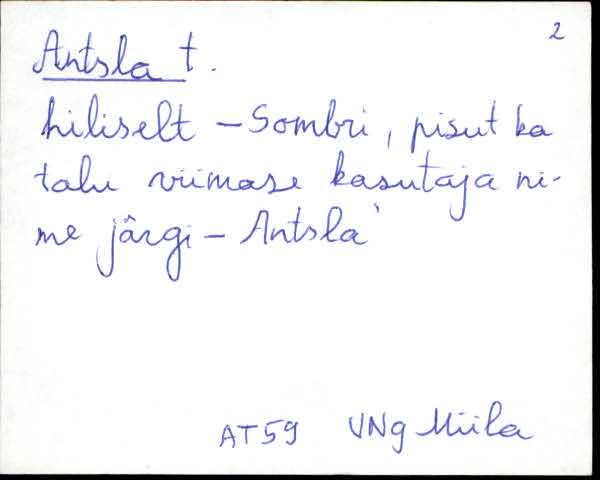 2
Antsla t.
hiliselt – Sombri, pisut ka
talu viimase kasutaja ni-
me järgi – Antsla'
AT59 VNg Miila